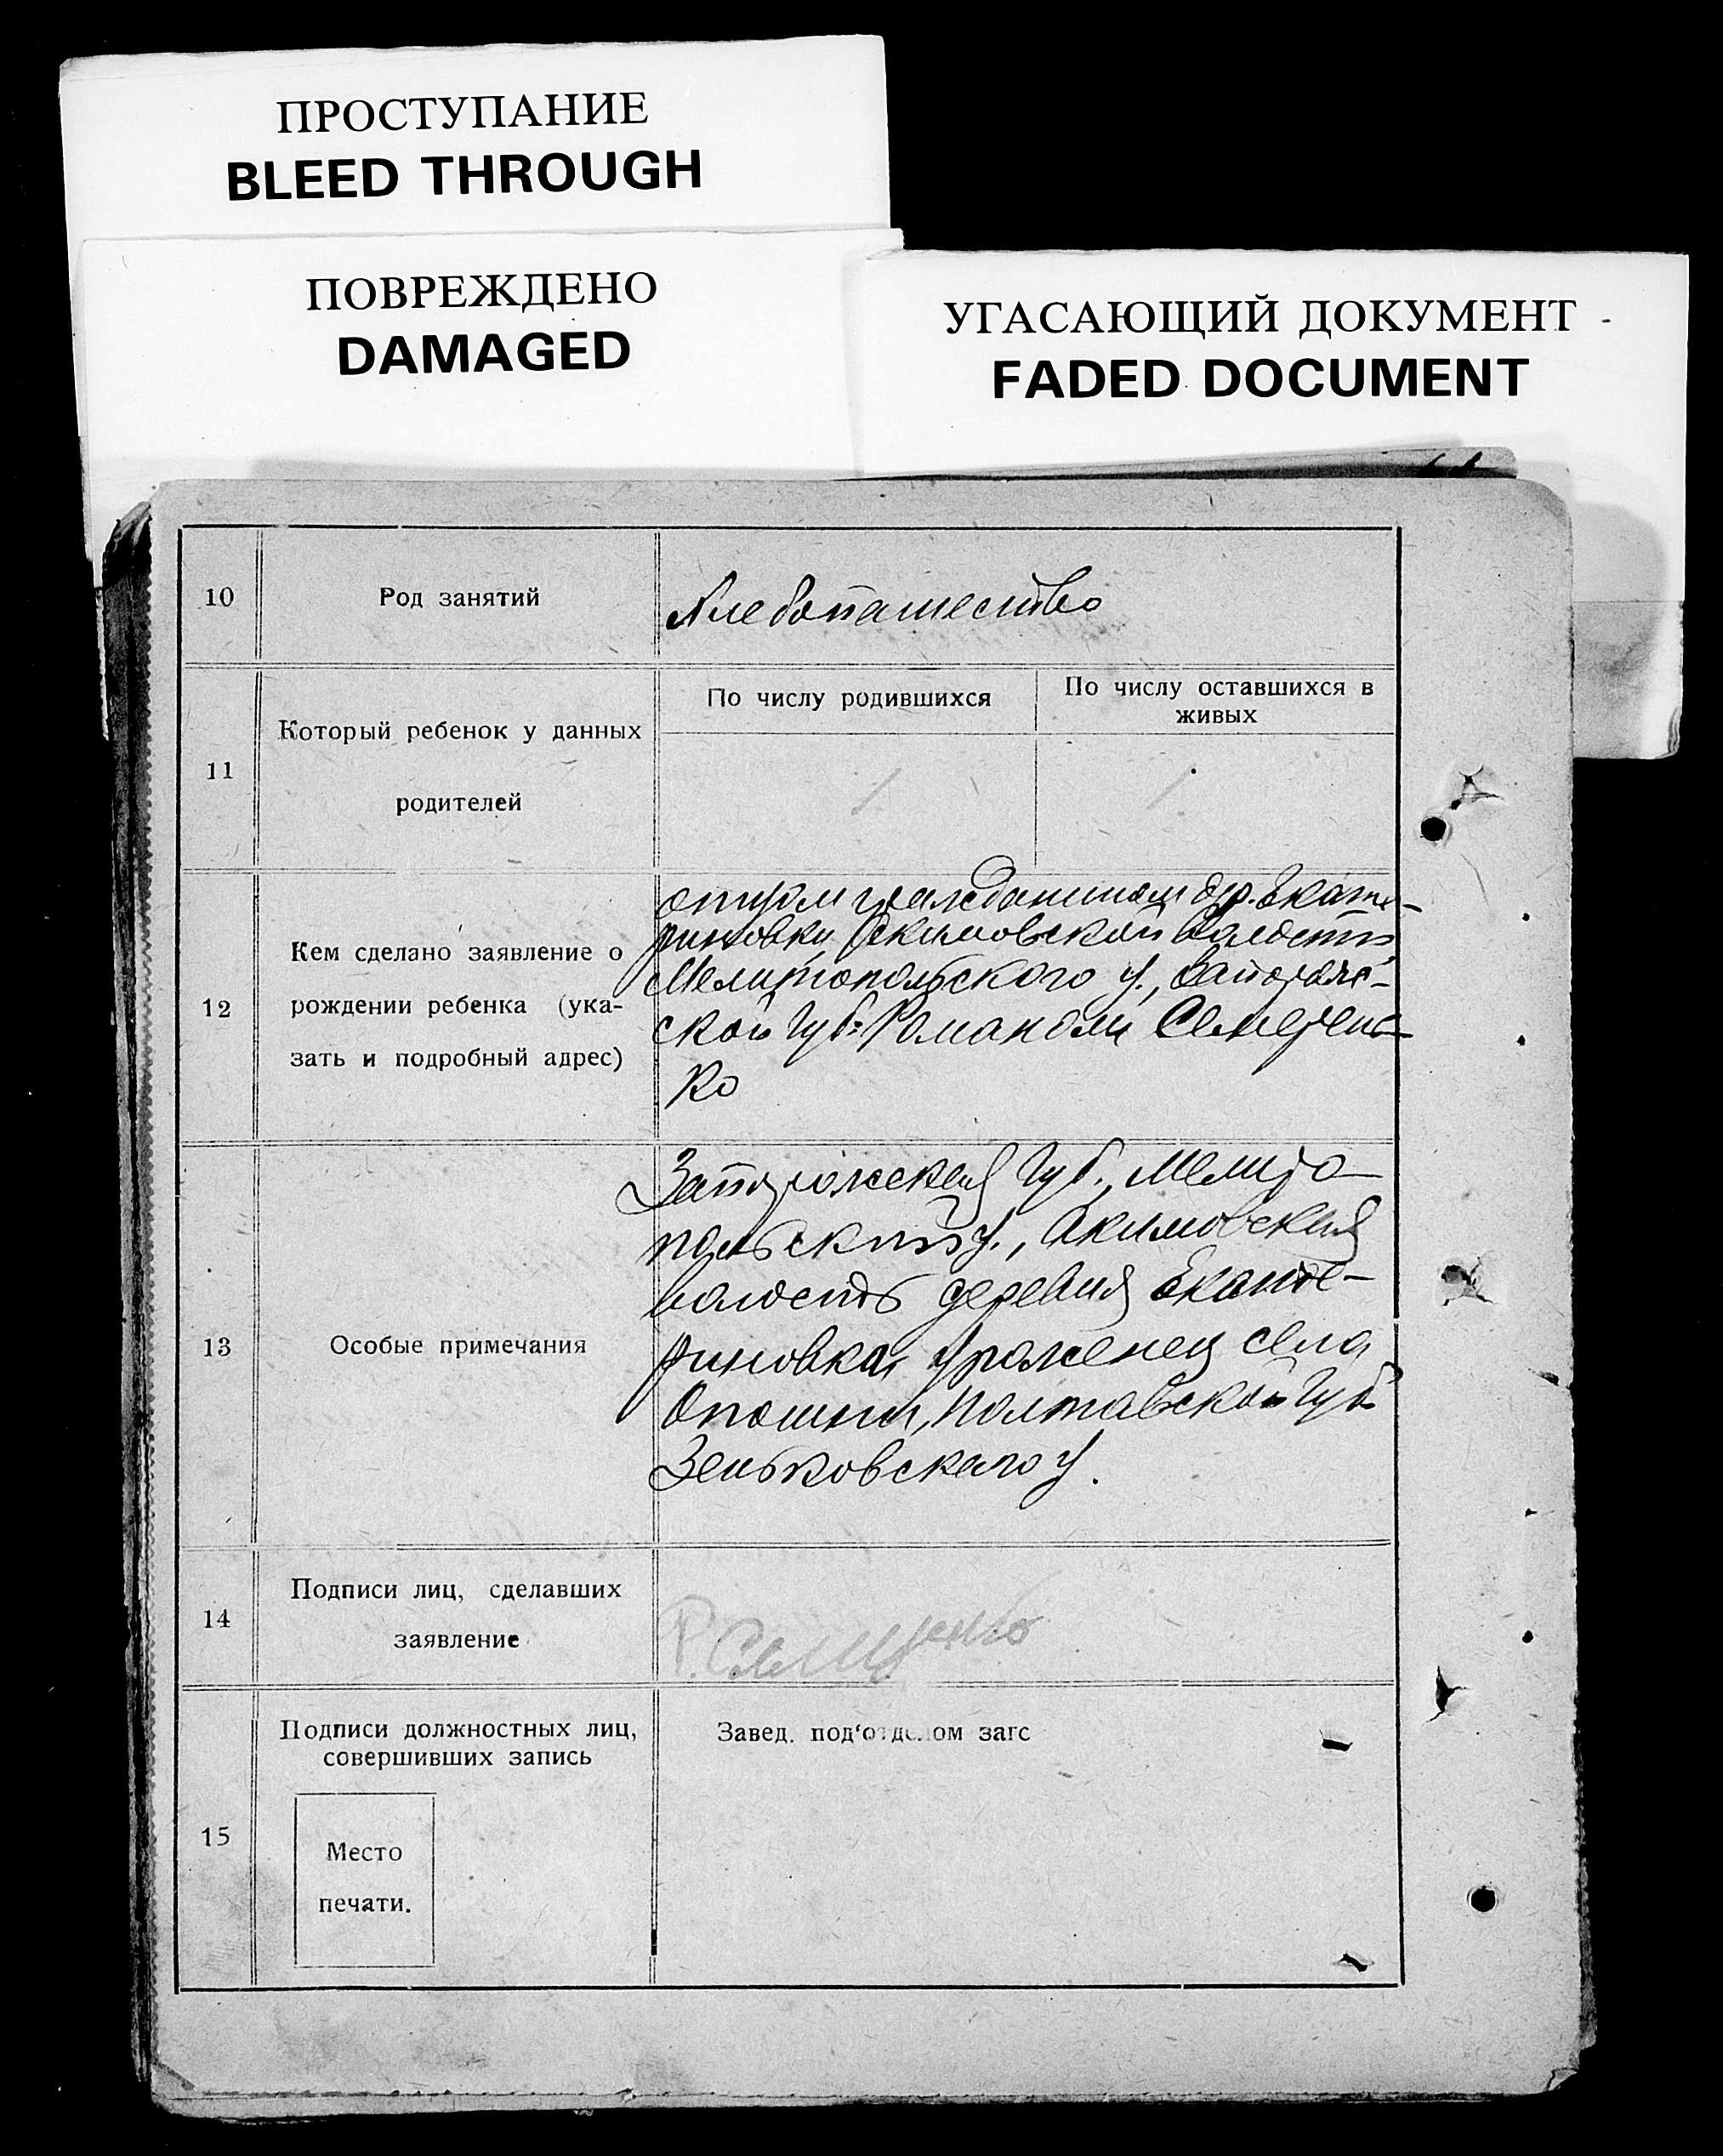 ПРОСТУПАНИЕ
BLEED THROUGH
ПОВРЕЖДЕНО
DAMAGED
УГАСАЮЩИЙ ДОКУМЕНТ
FADED DOCUMENT
10
Род занятий
Хлебопашество
11
Который ребенок у данных
родителей
По числу родившихся
По числу оставшихся в
живых
12
Кем сделано заявление о
рождении ребенка (ука-
зать и подробный адрес)
отцом гражданином дер. Екате-
риновки, Акимовской волости
Мелитопольского у., Запорож-
ской губ. Романом
ко
13
Особые примечания
Запорожская губ., Мелито
польский у., Акимовская
волость деревня Екате-
риновка, уроженец села
Опошни, Полтавской губ
Зеньковского у.
14
Подписи лиц, сделавших
заявление
Р.
15
Подписи должностных лиц,
совершивших запись
Завед. под'отделом загс
Место
печати.